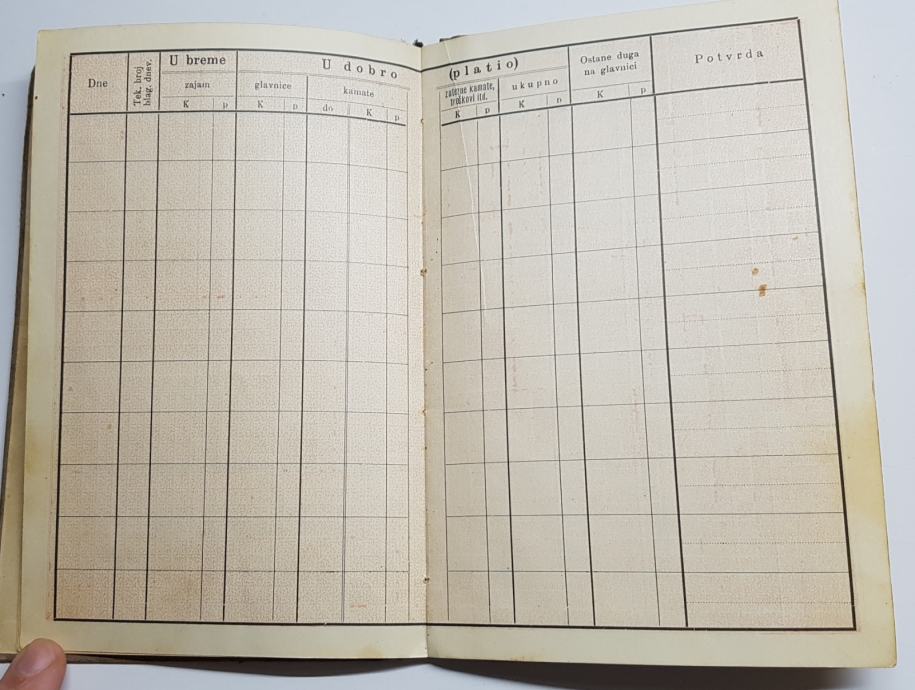 Dne
Tek. broj
blag. dnev.
U breme
zajam
K p
U dobro
glavnice
K p
kamate
do K p
(platio)
zatezne kamate,
troškovi itd.
K p
ukupno
K p
Ostane duga
na glavnici
K p
Potvrda